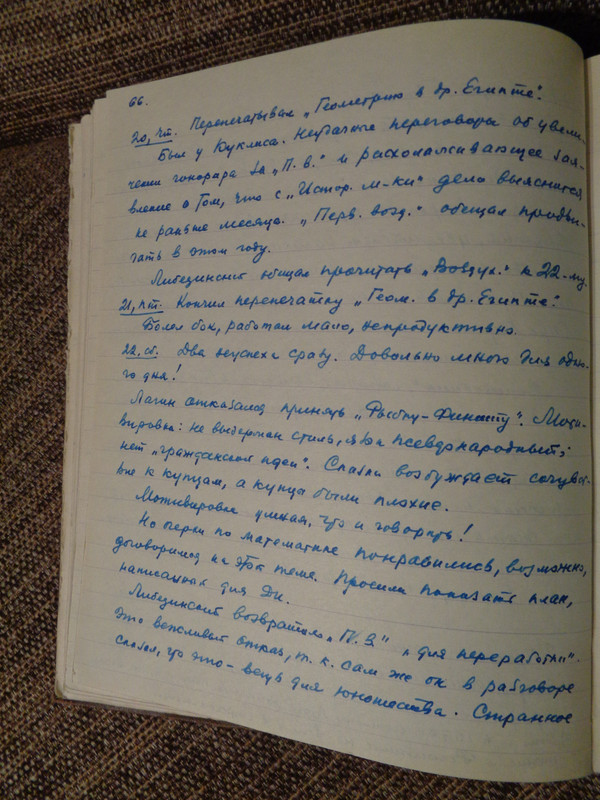 66.
20, чт. Перепечатывал „Геометрию в др. Египте".
Был у Куклиса. Неудачные переговоры об увели-
чении гонорара за „П. В." и расхолаживающее зая-
вление о том, что с „Истор. м-ки" дело выяснится
не раньше месяца. „Перв. возд." обещал продви-
гать в этом году.
Либединский обещал прочитать „Воздух." к 22-му.
21, пт. Кончил перепечатку „Геом. в др. Египте".
Болел бок, работал мало, непродуктивно.
22, сб. Два неуспеха сразу. Довольно много для одно-
го дня!
Лагин отказался принять „Рыбку-Финиту". Моти-
вировки: не выдержан стиль, язык псевдонародный;
нет „гражданской идеи". Сказка возбуждает сочувст-
вие к купцам, а купцы были плохие.
Мотивировка умная, что и говорить!
Но очерки по математике понравились, возможно,
договоримся на этой теме. Просили показать план,
написанный для Дн.
Либединский возвратил „П. В." „для переработки".
Это вежливый отказ, т. к. сам же он в разговоре
сказал, что это – вещь для юношества. Странное